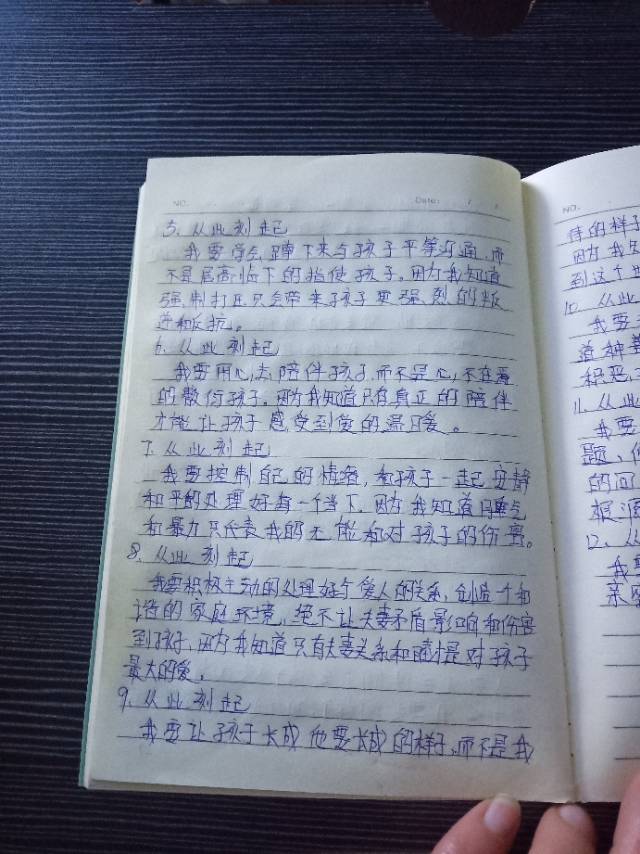 NO.
Date: / /
5. 从此刻起
我要学会蹲下来与孩子平等沟通,而
不是居高临下的指使孩子。因为我知道
强制打压只会带来孩子更强烈的叛
逆和反抗。
6. 从此刻起
我要用心去陪伴孩子,而不是心不在焉
的敷衍孩子。因为我知道只有真正的陪伴
才能让孩子感受到爱的温暖。
7. 从此刻起
我要控制自己的情绪,和孩子一起安静
和平的处理好每一个当下,因为我知道
和暴力只代表我的无能和对孩子的伤害。
8. 从此刻起
我要积极主动的处理好与爱人的关系,创造一个和
谐的家庭环境,绝不让夫妻矛盾影响和伤害
到孩子,因为我知道只有夫妻关系和睦才是对孩子
最大的爱。
9. 从此刻起
我要让孩子长成他要长成的样子,而不是我
NO.
待的样子
因为我知
到这个世
10. 从此
我要
道种善
积恶
11. 从此
我要
题,
的问
根源
12. 从
我
亲